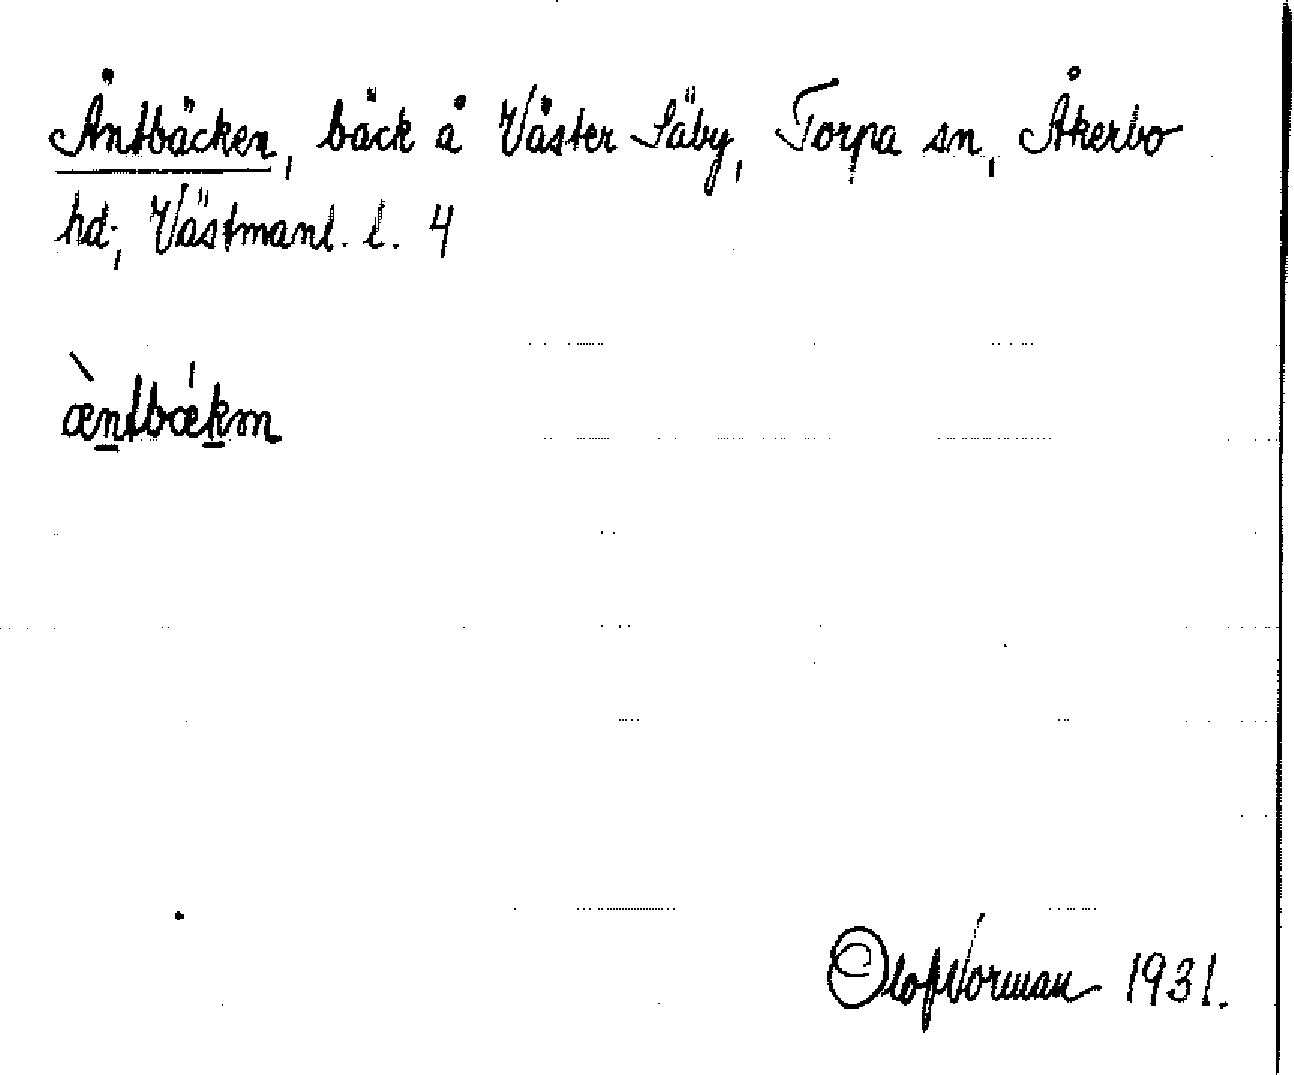 Äntbäcken, bäck å Väster Säby, Torpa sn, Åkerbo
hd., Västmanl. l. 4
æ̀ntbækm
Olof Norman 1931.